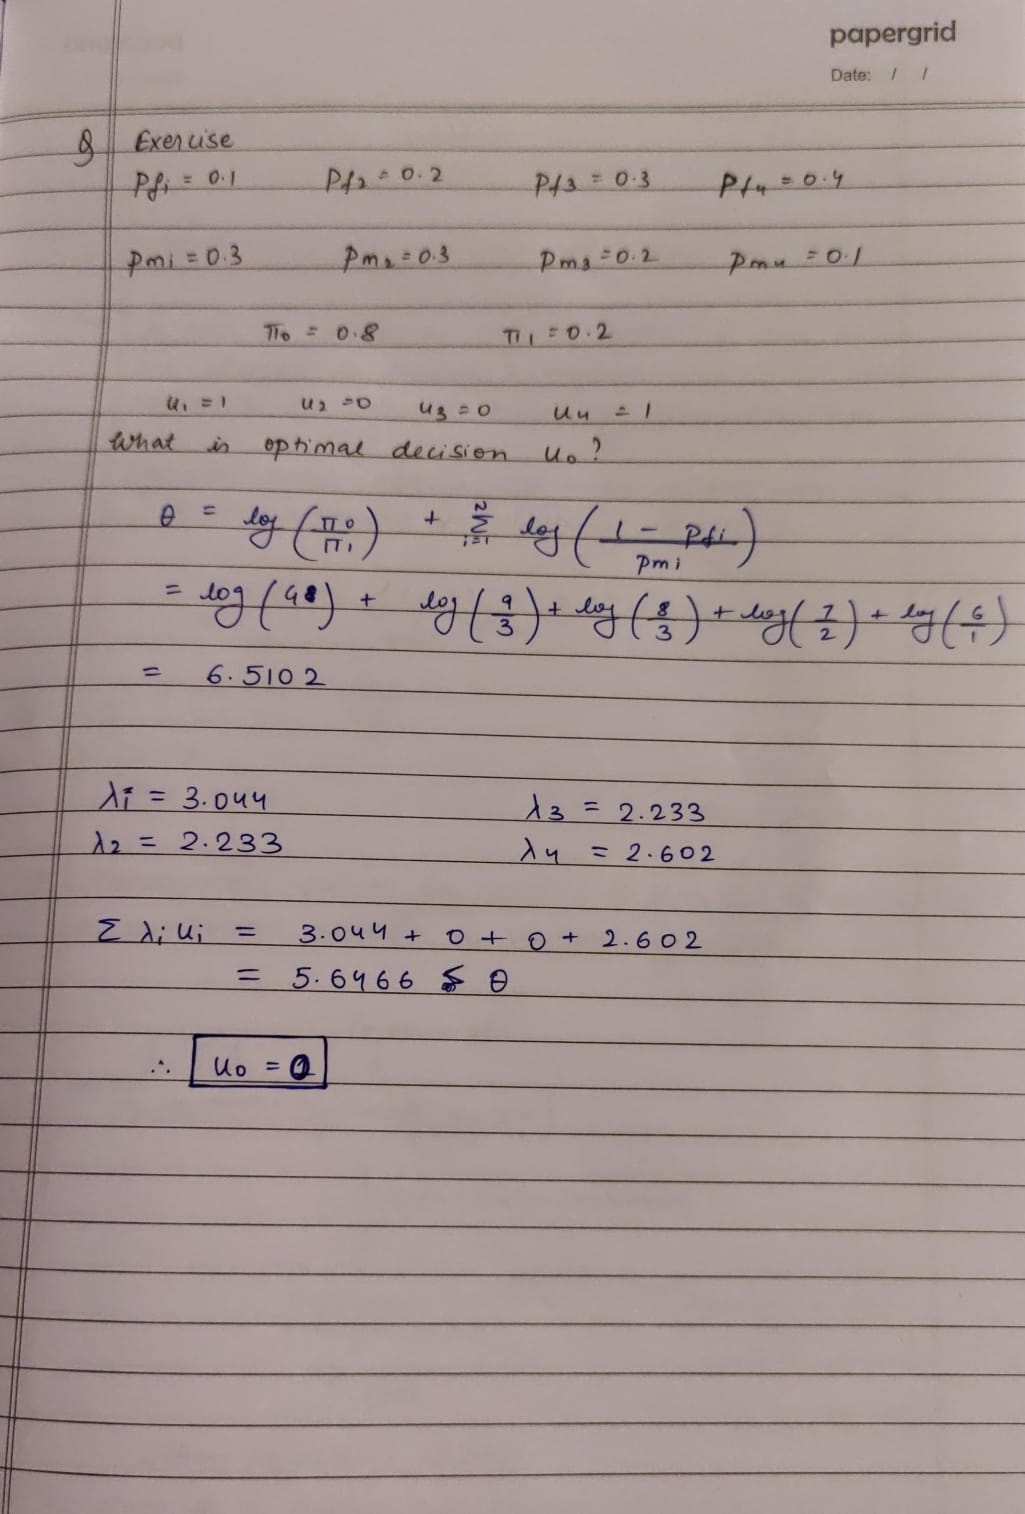 papergrid
Date: / /
Q Exercise
Pf₁ = 0.1 Pf₂ = 0.2 Pf₃ = 0.3 Pf₄ = 0.4
Pm₁ = 0.3 Pm₂ = 0.3 Pm₃ = 0.2 Pm₄ = 0.1
π₀ = 0.8 π₁ = 0.2
u₁ = 1 u₂ = 0 u₃ = 0 u₄ = 1
What is optimal decision u₀?
θ = log (π₀/π₁) + Σᵢ₌₁ᴺ log (1 - Pfi / Pmi)
= log (4) + log (9/3) + log (8/3) + log (7/2) + log (6/1)
= 6.5102
λ₁ = 3.044 λ₃ = 2.233
λ₂ = 2.233 λ₄ = 2.602
Σ λᵢ uᵢ = 3.044 + 0 + 0 + 2.602
= 5.6466 ≤ θ
∴ u₀ = 0